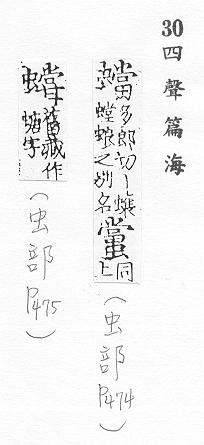 30 四聲篇海
蟷多郎切丨蠰螳螂之別名
同上(虫部 P474)
舊藏作螗字(虫部 P475)